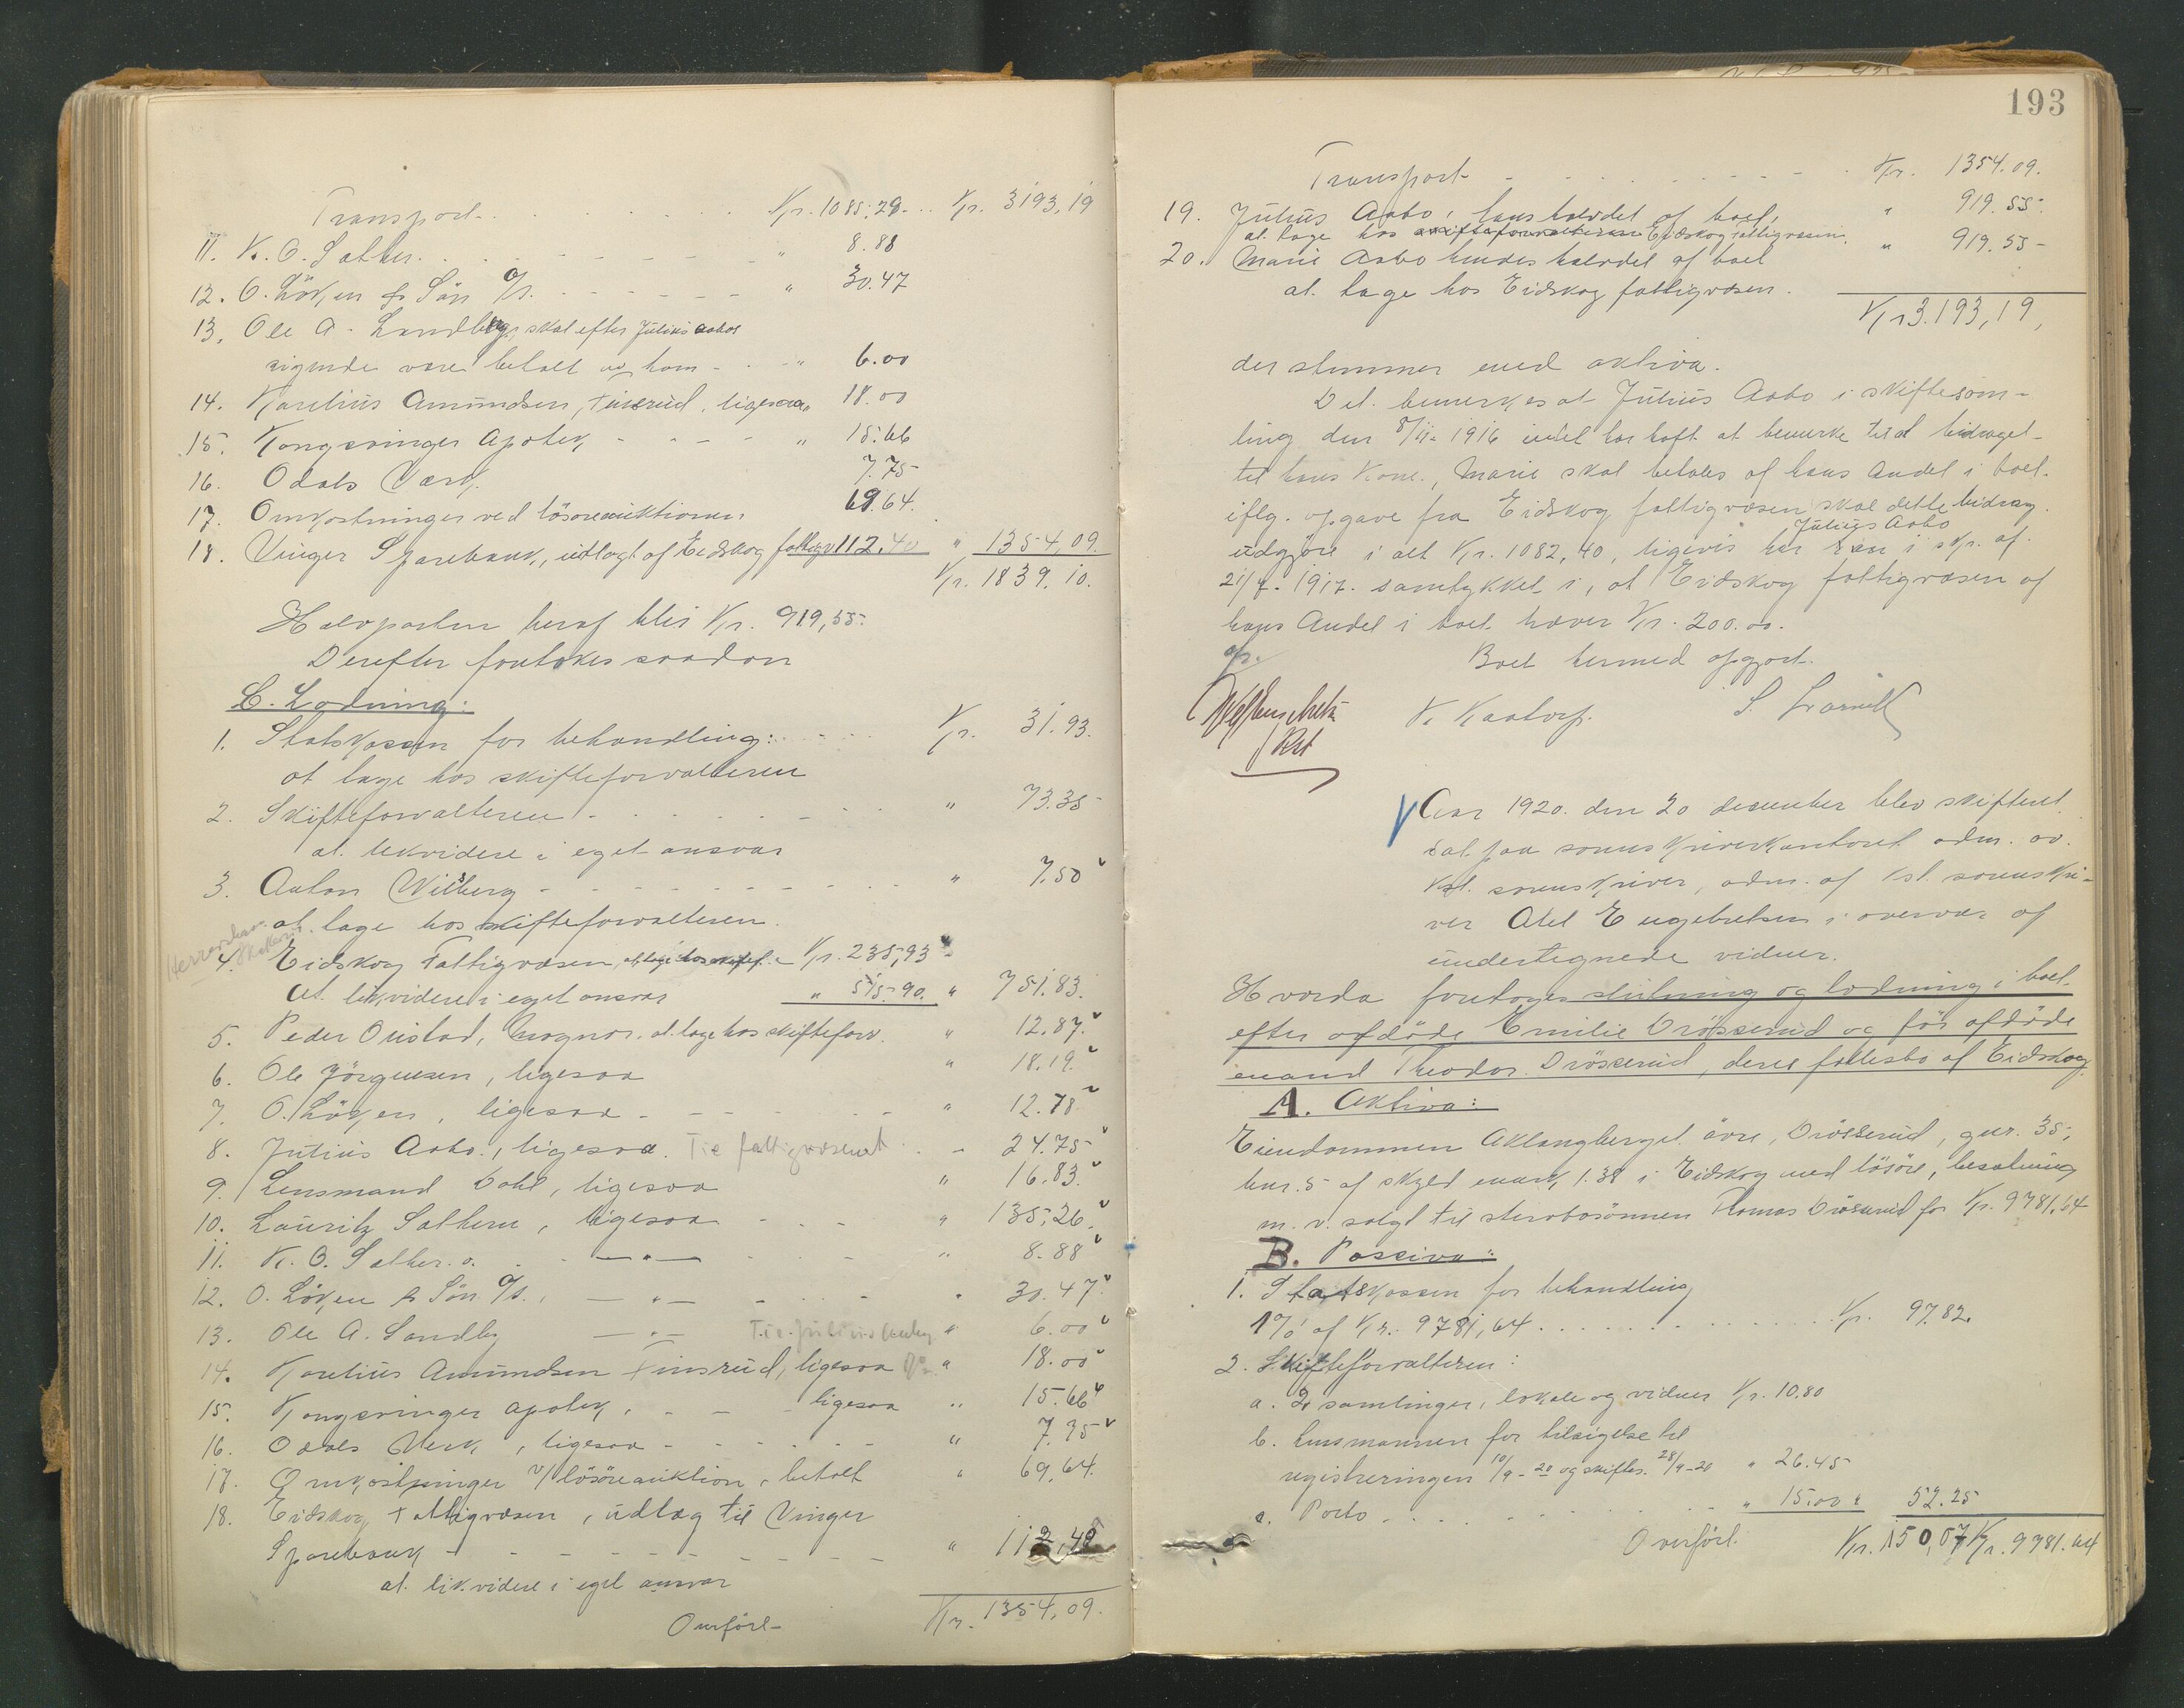 Transport . . . . . . . . Kr. 1085,28 . . Kr. 3193,19
11. K. O. Sather . . . - - - - " 8.88
12. O. Löken & Sön A/S. - - - - - - " 30.47
13. Ole A. Sandby, skal efter Julius Aabos
sigende være betalt av ham - . - " 6.00
14. Karelius Amundsen, Finsrud, ligesaa " 18.00
15. Kongsvinger Apotek - - - - " 15.66
16. Odals Værk. 7.75
17. Omkostninger ved lösøreauktionen 69.64.
18. Vinger Sparebank, utlagt af Eidskog fattigv. 112.40 " 1354,09.
Kr. 1839.10.
Halvparten heraf blir Kr. 919,55.
Derefter foretokes saadan
C. Lodning:
1. Statskassen for behandling: . . . . Kr. 31.93.
at tage hos skifteforvalteren
2. Skifteforvalteren - . . . . - . . " 73.35
at likvidere i eget ansvar
3. Anton Wiiberg - - - - - - - - - . . " 7.50
at tage hos skifteforvalteren.
4. Eidskog Fattigvæsen, Kr. 235,93
At likvidere i eget ansvar " 515.90. " 751.83.
5. Peder Oustad, Magnor, at tage hos skifteforv. " 12.87.
6. Ole Jörgensen, ligesaa " 18.19
7. O. Löken, ligesaa - - - - - - " 12.78
8. Julius Aabo, ligesaa. Til fattigvæsenet . - 24.75
9. Lensmand Dahl, ligesaa " 16.83.
10. Lauritz Sathern, ligesaa - - - " 135,26.
11. K. O. Sather. . . — " — - . - " 8.88
12. O. Löken & Sön A/S., — " — - . - " 30.47
13. Ole A. Sandby — " — Til Julius Aabo " 6.00
14. Karelius Amundsen Finsrud, ligesaa " 18.00
15. Kongsvinger apotek, . - - - ligesaa " 15.66
16. Odals Verk, ligesaa - - - - - - " 7.75
17. Omkostninger v/ lösöreauktion, betalt " 69,64.
18. Eidskog Fattigvæsen, utlæg til Vinger
Sparebank - - - - - - - - - " 112,40
at likvidere i eget ansvar
Overfört - Kr. 1354,09.
193
Transport - - . . . . . . - . Kr. 1354.09.
19. Julius Aabo, hans halvdel af boet, " 919.55.
at tage hos skifteforvalteren Eidskog fattigvæsen.
20. Marie Aabo hendes halvdel af boet " 919.55 -
at tage hos Eidskog fattigvæsen.
Kr 3.193,19,
der stemmer med aktiva.
Det bemerkes at Julius Aabo i skiftesam-
ling den 8/11- 1916 intet har haft at bemerke til at bidraget
til hans Kone, Marie skal betales af hans Andel i boet.
iflg. opgave fra Eidskog fattigvæsen skal dette bidrag
Julius Aabo
udgjöre i alt Kr. 1082,40, ligevis har han i skr. af
21/7- 1917. samtykket i, at Eidskog fattigvæsen af
hans Andel i boet hæver Kr. 200.00.
Boet hermed opgjort.
K. Kaatorp.
Aar 1920. den 20 desember blev skifteret
sat paa sorenskriverkontoret adm. av
kst. sorenskriver, adm. af kst. sorenskri-
ver Atel Engebretsen i overvær af
undertegnede vidner.
Hvorda foretoges slutning og lodning i boet
efter afdöde Emilie Drösserud og för afdöde
mand Theodor Drösserud, deres fællesbo af Eidskog
A. Aktiva:
Eiendommen Aklangberget övre, Drösserud, gnr. 35,
bnr. 5 af skyld mark 1.38 i Eidskog med lösöre, besætning
m. v. solgt til sterbosönnen Thomas Drösserud for Kr. 9781,64
B. Passiva:
1. Statskassen for behandling
1% af Kr. 9781,64 . . . . . . . . . . . . . . Kr. 97.82.
2. Skifteforvalteren:
a. 2 samlinger, lokale og vidner Kr. 10.80
b. Lensmannen for tilsigelse til
registreringen 10/9-20 og skiftes. 28/9-20 " 26.45
c. Porto . . . . . . . . . - - " 15.00 " 52.25
Overfört. Kr. 150,07 Kr. 9781.64